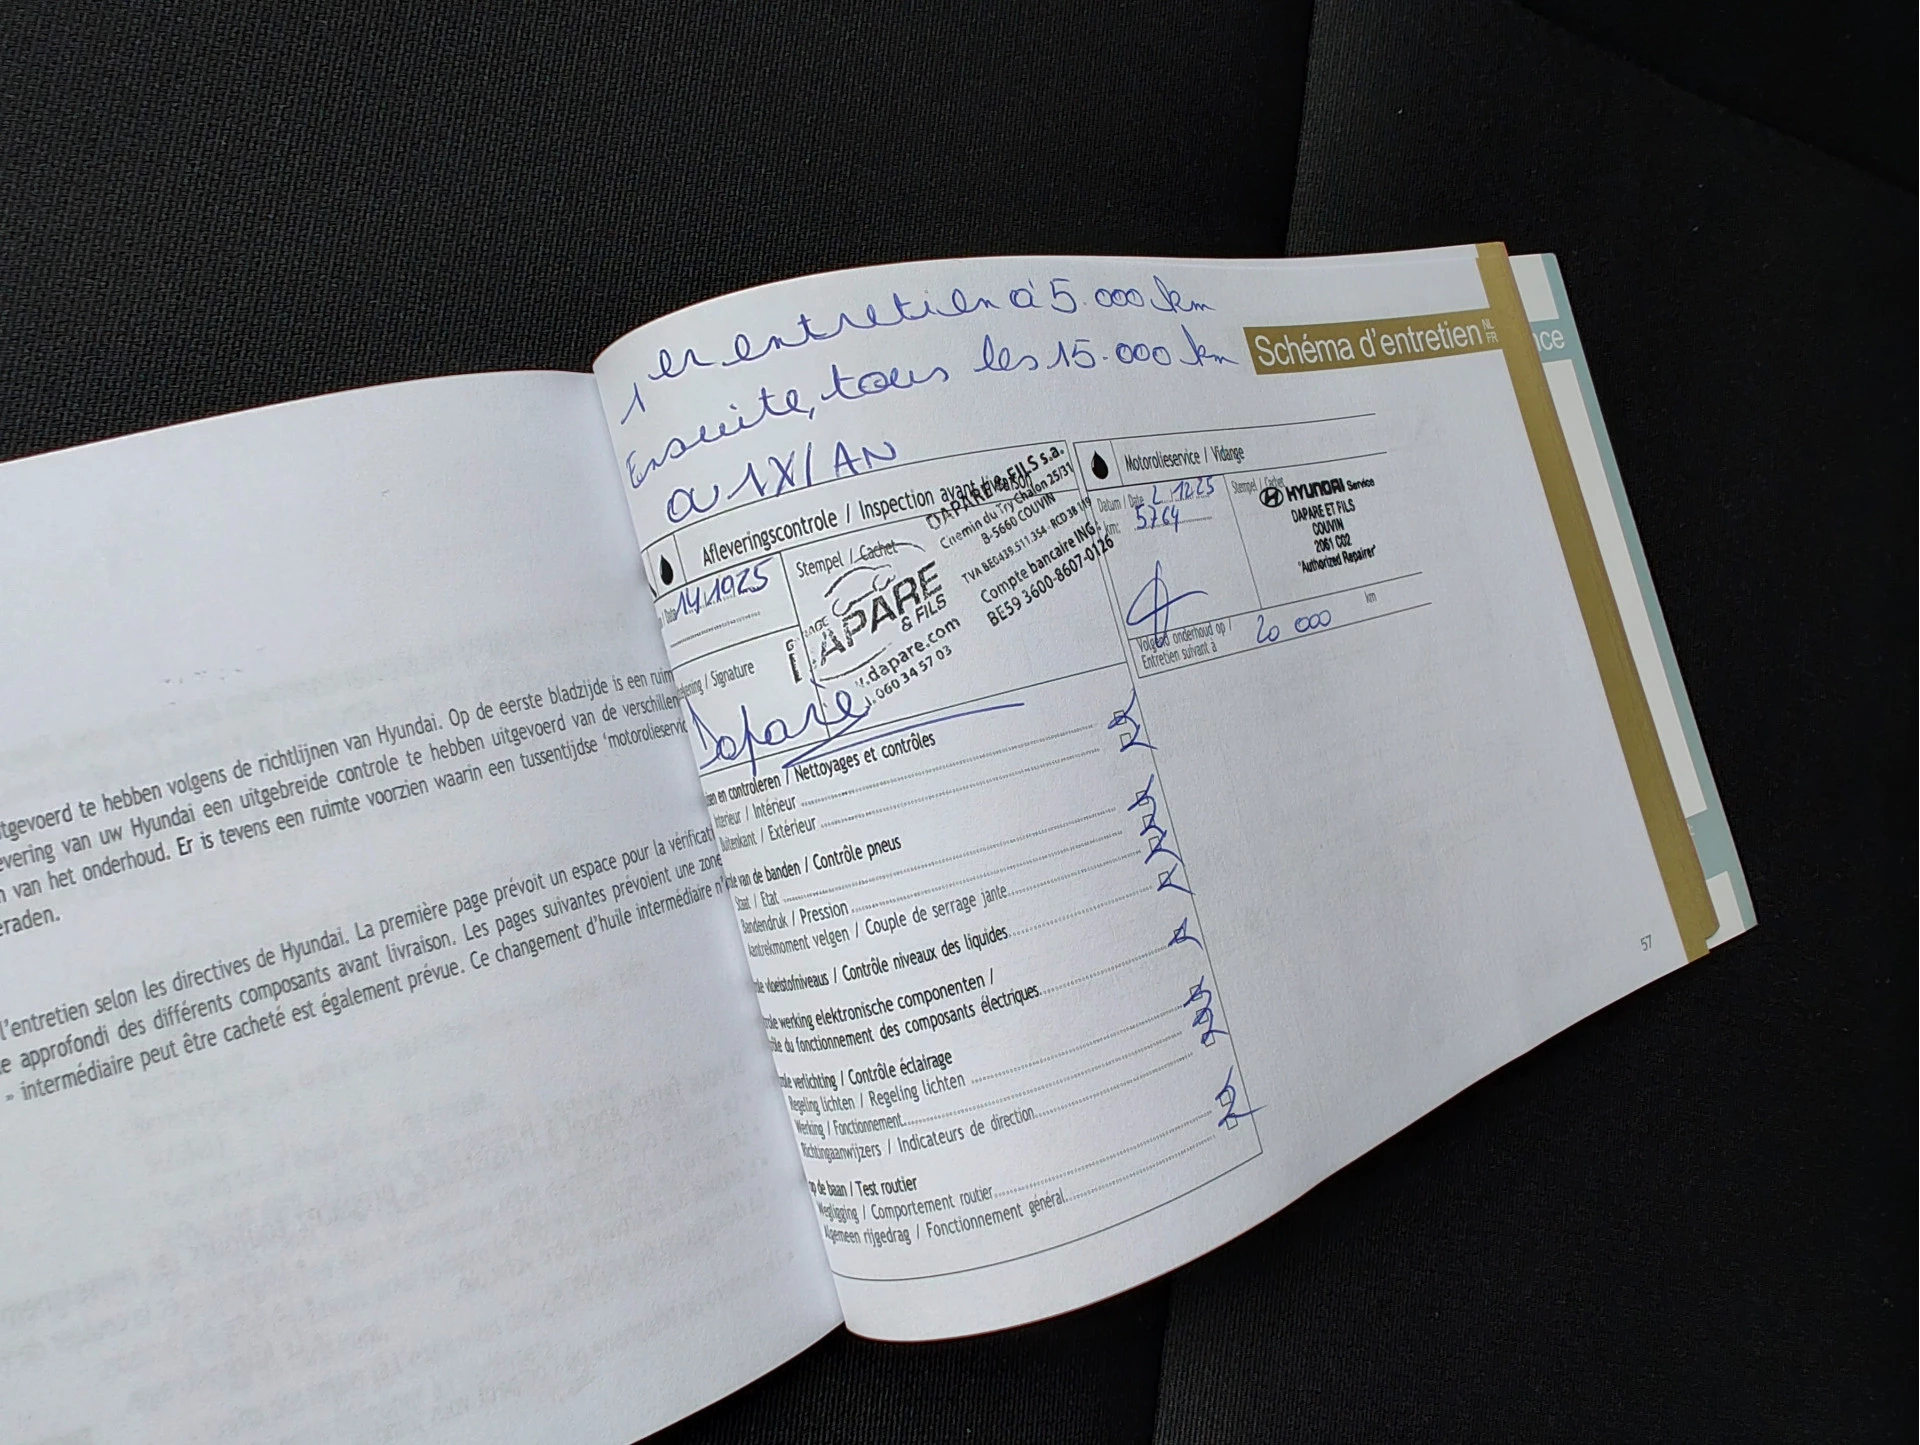 1er entretien à 5.000 km
Ensuite, tous les 15.000 km
ou 1X/AN
Schéma d'entretien NL FR
nce
Afleveringscontrole / Inspection avant livraison
14.10 25
Stempel / Cachet
DAPARE & FILS s.a.
Chemin du Try-Chalon 25/31
B-5660 COUVIN
TVA BE0439.511.354 - RCD 38 149
Compte bancaire ING :
BE59 3600-8607-0126
DAPARE
& FILS
.dapare.com
060 34 57 03
/ Signature
Daparé
Motorolieservice / Vidange
Datum / Date 2 12 25
km: 5764
Stempel / Cachet
HYUNDAI Service
DAPARE ET FILS
COUVIN
2061 C02
"Authorized Repairer"
Volgend onderhoud op /
Entretien suivant à
20 000 km
en controleren / Nettoyages et contrôles
Interieur / Intérieur
Buitenkant / Extérieur
van de banden / Contrôle pneus
Staat / Etat
Bandendruk / Pression
Aantrekmoment velgen / Couple de serrage jante
vloeistofniveaus / Contrôle niveaux des liquides
werking elektronische componenten /
du fonctionnement des composants électriques
verlichting / Contrôle éclairage
Regeling lichten / Regeling lichten
Werking / Fonctionnement
Richtingaanwijzers / Indicateurs de direction
op de baan / Test routier
Wegligging / Comportement routier
Algemeen rijgedrag / Fonctionnement général
57
itgevoerd te hebben volgens de richtlijnen van Hyundai. Op de eerste bladzijde is een ruim
evering van uw Hyundai een uitgebreide controle te hebben uitgevoerd van de verschillen
n van het onderhoud. Er is tevens een ruimte voorzien waarin een tussentijdse 'motorolieservic
eraden.
l'entretien selon les directives de Hyundai. La première page prévoit un espace pour la vérificati
e approfondi des différents composants avant livraison. Les pages suivantes prévoient une zone
» intermédiaire peut être cacheté est également prévue. Ce changement d'huile intermédiaire n'